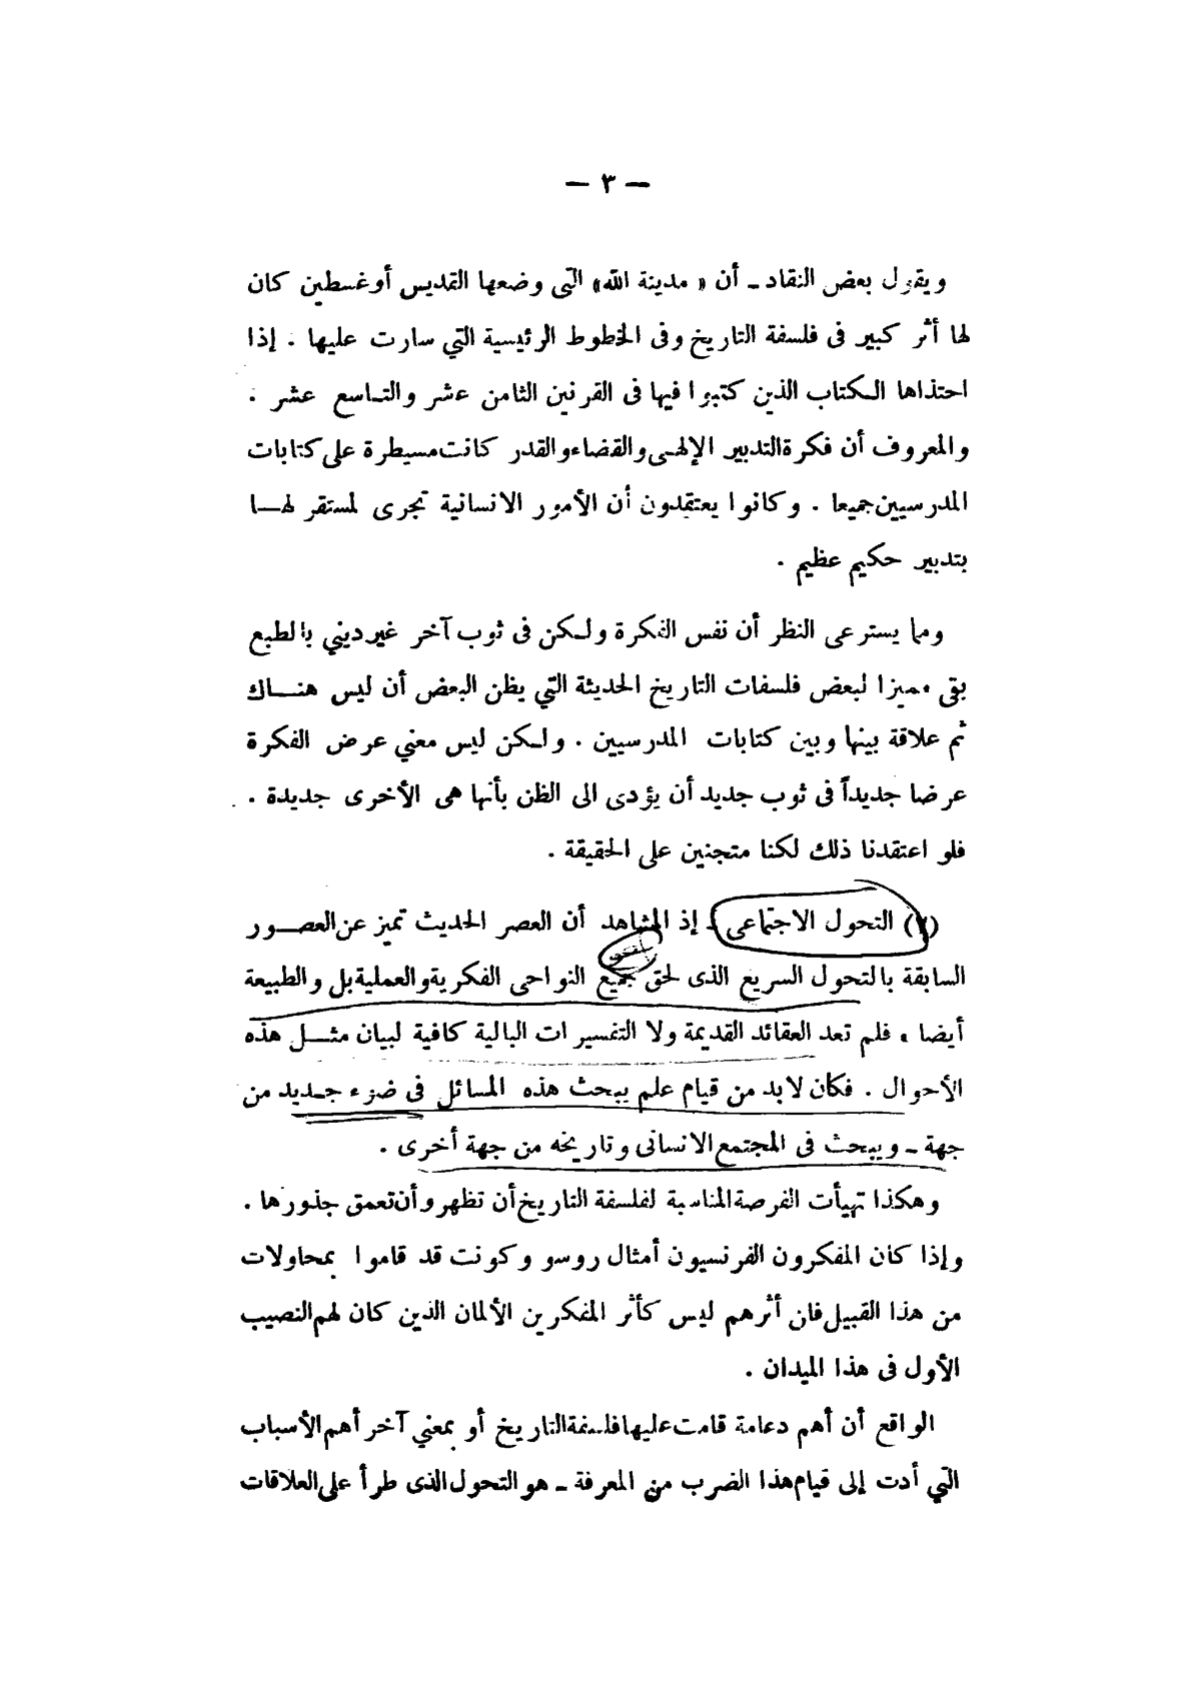 — ٣ —
ويقول بعض النقاد ـ أن « مدينة الله» التى وضعها القديس أوغسطين كان
لها أثر كبير فى فلسفة التاريخ وفى الخطوط الرئيسية التي سارت عليها . إذا
احتذاها الكتاب الذين كتبوا فيها فى القرنين الثامن عشر والتاسع عشر .
والمعروف أن فكرة التدبير الإلهى والقضاء والقدر كانت مسيطرة على كتابات
المدرسيين جميعا . وكانوا يعتقدون أن الأمور الانسانية تجرى لمستقر لها
بتدبير حكيم عظيم .
ومما يسترعى النظر أن نفس الفكرة ولكن فى ثوب آخر غير ديني بالطبع
بقى مميزا لبعض فلسفات التاريخ الحديثة التي يظن البعض أن ليس هناك
ثم علاقة بينها وبين كتابات المدرسيين . ولكن ليس معني عرض الفكرة
عرضا جديداً فى ثوب جديد أن يؤدى الى الظن بأنها هى الأخرى جديدة .
فلو اعتقدنا ذلك لكنا متجنين على الحقيقة .
(٢) التحول الاجتماعى ـ إذ المشاهد أن العصر الحديث تميز عن العصور
السابقة بالتحول السريع الذى لحق جميع النواحى الفكرية والعملية بل والطبيعة
أيضا . فلم تعد العقائد القديمة ولا التفسيرات البالية كافية لبيان مثل هذه
الأحوال . فكان لابد من قيام علم يبحث هذه المسائل فى ضوء جديد من
جهة ـ ويبحث فى المجتمع الانسانى وتاريخه من جهة أخرى .
وهكذا تهيأت الفرصة المناسبة لفلسفة التاريخ أن تظهر وأن تعمق جذورها .
وإذا كان المفكرون الفرنسيون أمثال روسو وكونت قد قاموا بمحاولات
من هذا القبيل فان أثرهم ليس كأثر المفكرين الألمان الذين كان لهم النصيب
الأول فى هذا الميدان .
الواقع أن أهم دعامة قامت عليها فلسفة التاريخ أو بمعني آخر أهم الأسباب
التي أدت إلى قيام هذا الضرب من المعرفة ـ هو التحول الذى طرأ على العلاقات